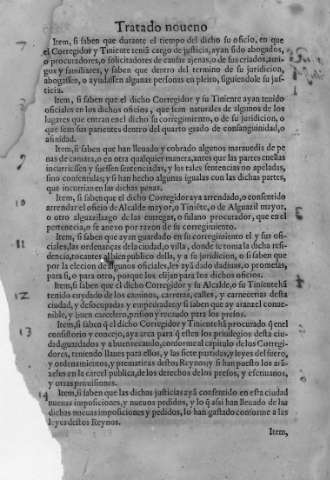 Tratado noueno
Item, si saben que durante el tiempo del dicho su oficio, en que
el Corregidor y Tiniente teniã cargo de justicia, ayan sido abogados,
o procuradores, o solicitadores de causas ajenas, o de sus criados, ami-
gos y familiares, y saben que dentro del termino de su juridicion,
abogassen, o ayudassen algunas personas en pleito, siguiendole su jus-
ticia.
Item, si saben que el dicho Corregidor y su Tiniente ayan tenido
oficiales en los dichos oficios, que sean naturales de algunos de los
lugares que entran en el dicho su corregimiento, o de su juridicion, o
que sean sus parientes dentro del quarto grado de consanguinidad, o
afinidad.
Item, si saben que han lleuado y cobrado algunos marauedis de pe
nas de camara, o en otra qualquier manera, antes que las partes en ellas
incurriessen y fuessen sentenciadas, y las tales sentencias no apeladas,
sino consentidas, y si han hecho algunas igualas con las dichas partes,
que incurrian en las dichas penas.
Item, si saben que el dicho Corregidor aya arrendado, o consentido
arrendar el oficio de Alcalde mayor, o Tiniẽte, o de Alguazil mayor,
o otro alguazilazgo de las entregas, o fulano procurador, que en el
pertenencia, o se anexo por razon de su corregimiento.
Item, si saben que ayan guardado en su corregimiento el y sus ofi-
ciales, las ordenanças de la ciudad, o villa, donde se toma la dicha resi-
dencia, tocantes al bien publico della, y a su juridicion, o si saben que
por la elecion de algunos oficiales, les ayã dado dadiuas, o promesas,
para si, o para otro, porque los elijan para los dichos oficios.
Item, si saben que el dicho Corregidor y su Alcalde, o su Tiniente hã
tenido cuydado de los caminos, carreras, calles, y carnecerias desta
ciudad, y desocupadas y empedradas: y si saben que ay aranzel conue-
nible, y buen carcelero, prision y recaudo para los presos.
Item, si saben q̃ el dicho Corregidor y Tiniente hã procurado q̃ en el
consistorio y concejo, aya arca para q̃ esten los priuilegios desta ciu-
dad guardados y a buen recaudo, conforme al capitulo de los Corregi-
dores, teniendo llaues para ellos, y las siete partidas, y leyes del fuero,
y ordenamientos, y prematicas destos Reynos: y si han puesto los arã-
zeles en la carcel publica, de los derechos de los presos, y escriuanos,
y otras prouisiones.
Item, si saben que las dichas justicias ayã consentido en esta ciudad
nueuas imposiciones, y nueuos pedidos, y lo q̃ assi han lleuado de las
dichas nueuas imposiciones y pedidos, lo han gastado conforme a las
leyes destos Reynos.
Item,